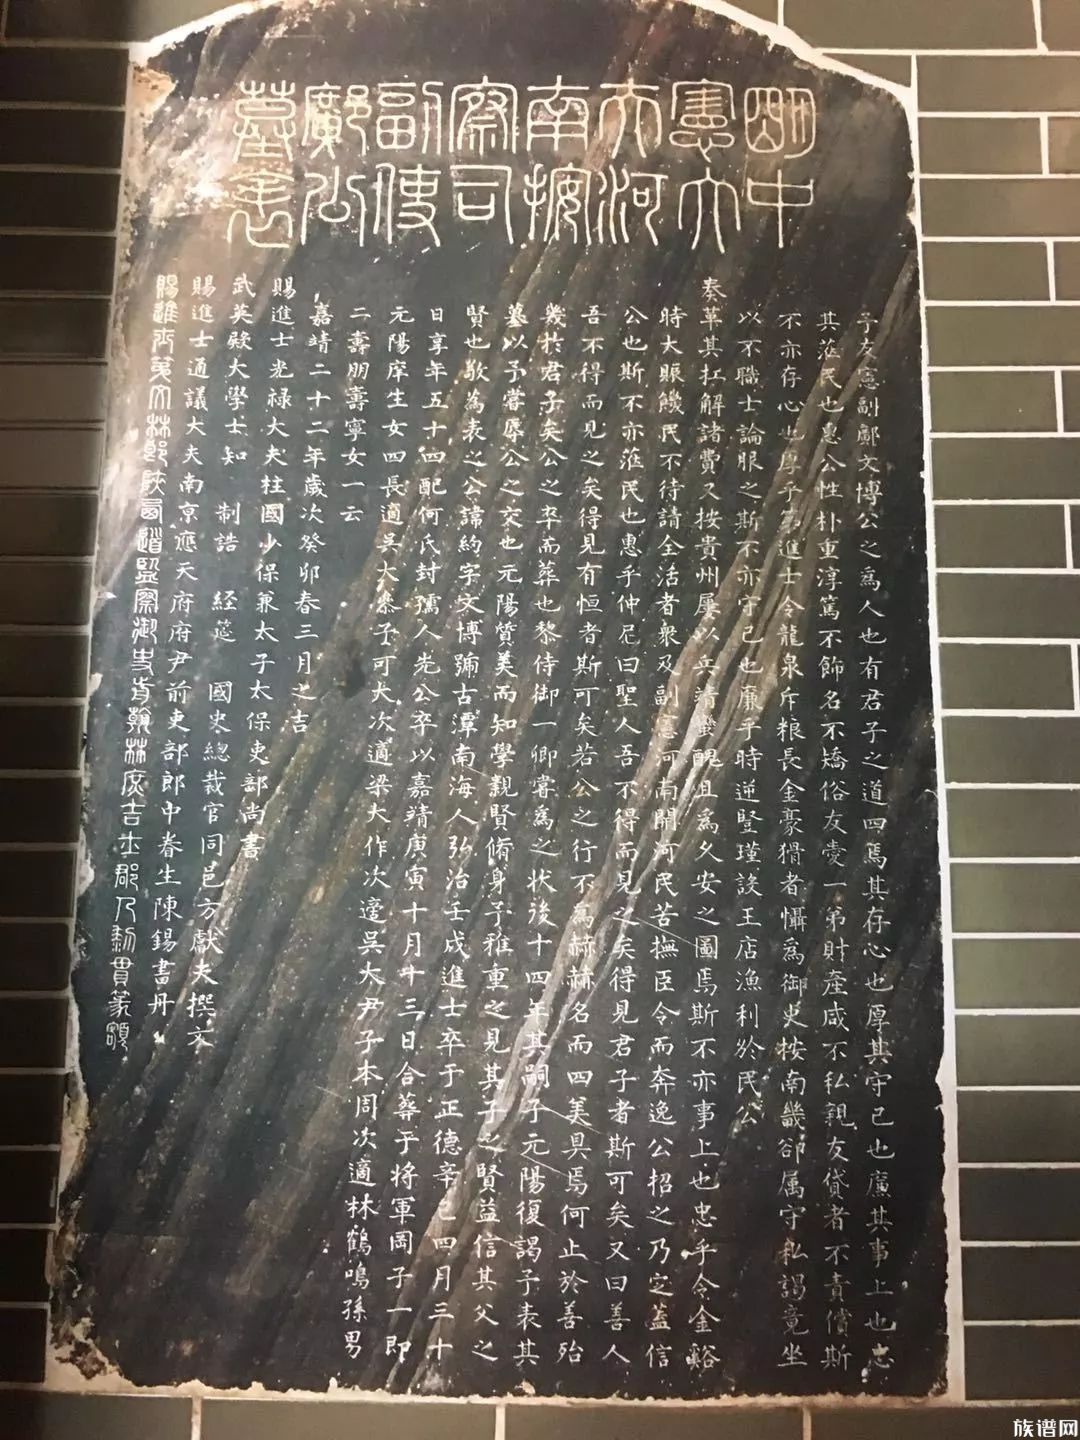 明中
憲大
夫河
南按
察司
副使
鄺公
墓表
子友憲副鄺文博公之為人也有君子之道四焉其存心也厚其守己也廉其事上也忠
其蒞民也惠公性朴重淳篤不飾名不矯俗友愛一弟財產咸不私親友貸者不責償斯
不亦存心也厚乎第進士令龍泉斥粮長金豪猾者懾為御史按南畿卻属守私謁竟坐
以不職士論服之斯不亦守己也廉乎時逆竪瑾設王店漁利於民公
奏革其扛解諸費又按貴州屢以兵靖蠻醜且為久安之圖焉斯不亦事上也忠乎令金谿
時大賑饑民不待請全活者衆及副憲河南開河民苦撫臣令而奔逸公招之乃定蓋信
公也斯不亦蒞民也惠乎仲尼曰聖人吾不得而見之矣得見君子者斯可矣又曰善人
吾不得而見之矣得見有恒者斯可矣若公之行不為赫赫名而四美具焉何止於善殆
幾於君子矣公之卒而葬也黎侍御一卿寔為之状後十四年其嗣子元陽復謁予表其
墓以予嘗辱公之交也元陽質美而知學親賢脩身予雅重之見其子之賢益信其父之
賢也敬為表之公諱約字文博號古潭南海人弘治壬戌進士卒于正德辛巳四月三十
日享年五十四配何氏封孺人先公卒以嘉靖庚寅十月十三日合葬于将軍岡子一即
元陽庠生女四長適吳大叅子可大次適梁大作次適吳大尹子本周次適林鶴鳴孫男
二壽朋壽寧女一云
嘉靖二十二年歲次癸卯春三月之吉
賜進士光禄大夫柱國少保兼太子太保吏部尚書
武英殿大學士知 制誥 經筵 國史總裁官同邑方獻夫撰文
賜進士通議大夫南京應天府府尹前吏部郎中眷生陳錫書丹
賜進士第文林郎陜西道監察御史前翰林庶吉士郡人黎貫篆額
族谱网